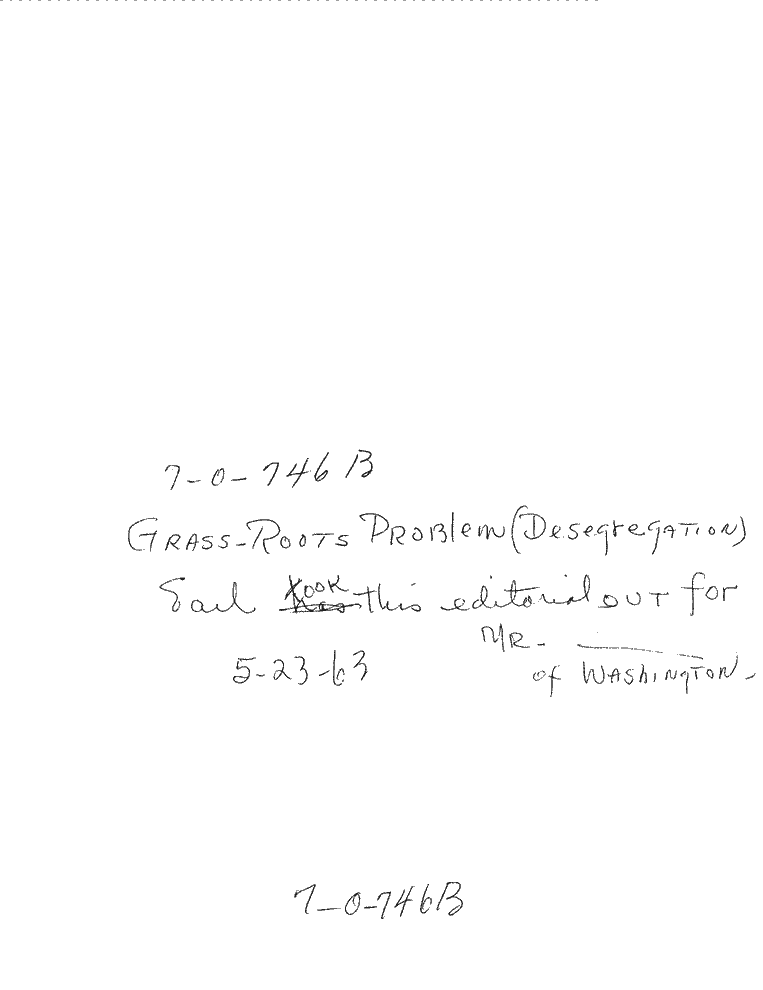 7-0-746 B
GRASS-ROOTS PROBlem (DesegregATION)
Earl took this editorial OUT for
MR. ______
5-23-63
of WAShINgTON-
7-0-746B